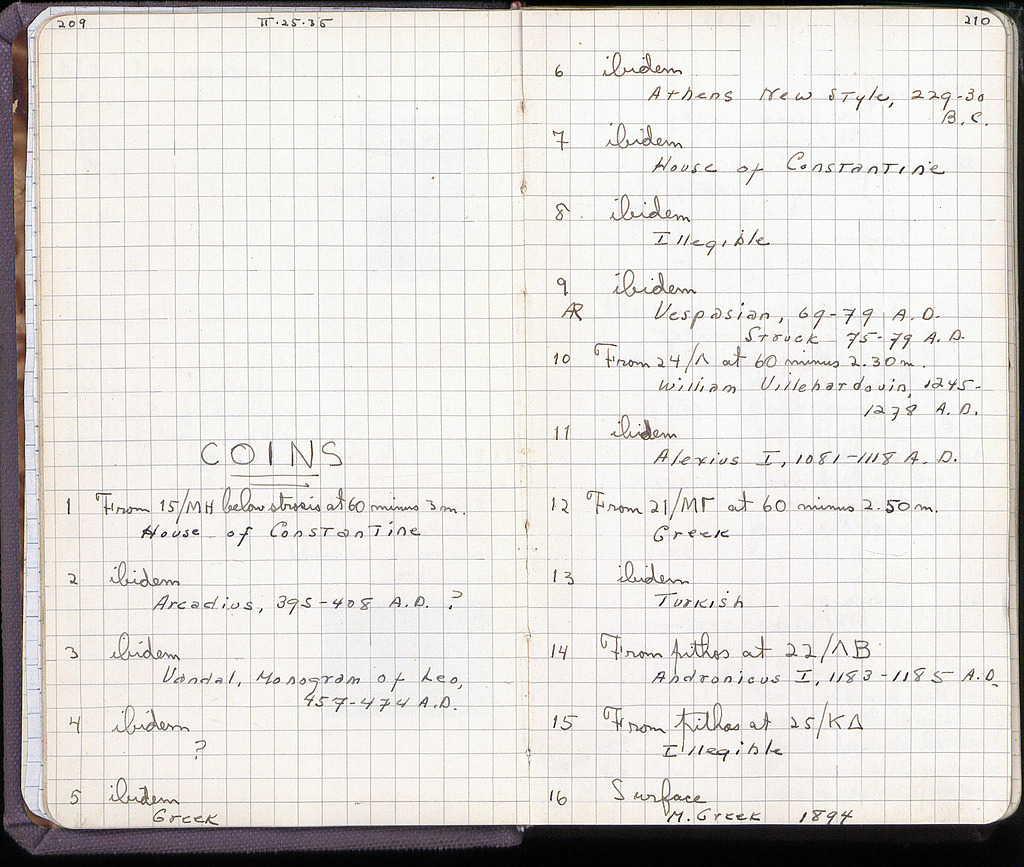 209
II·25·36
COINS
1 From 15/ΜΗ below strosis at 60 minus 3 m.
House of Constantine
2 ibidem
Arcadius, 395-408 A.D. ?
3 ibidem
Vandal, Monogram of Leo,
457-474 A.D.
4 ibidem
?
5 ibidem
Greek
210
6 ibidem
Athens New Style, 229-30
B.C.
7 ibidem
House of Constantine
8 ibidem
Illegible
9 ibidem
AR Vespasian, 69-79 A.D.
Struck 75-79 A.D.
10 From 24/Λ at 60 minus 2.30 m.
William Villehardouin, 1245-
1278 A.D.
11 ibidem
Alexius I, 1081-1118 A.D.
12 From 21/ΜΓ at 60 minus 2.50 m.
Greek
13 ibidem
Turkish
14 From pithos at 22/ΛΒ
Andronicus I, 1183-1185 A.D.
15 From pithos at 25/ΚΔ
Illegible
16 Surface
M. Greek 1894